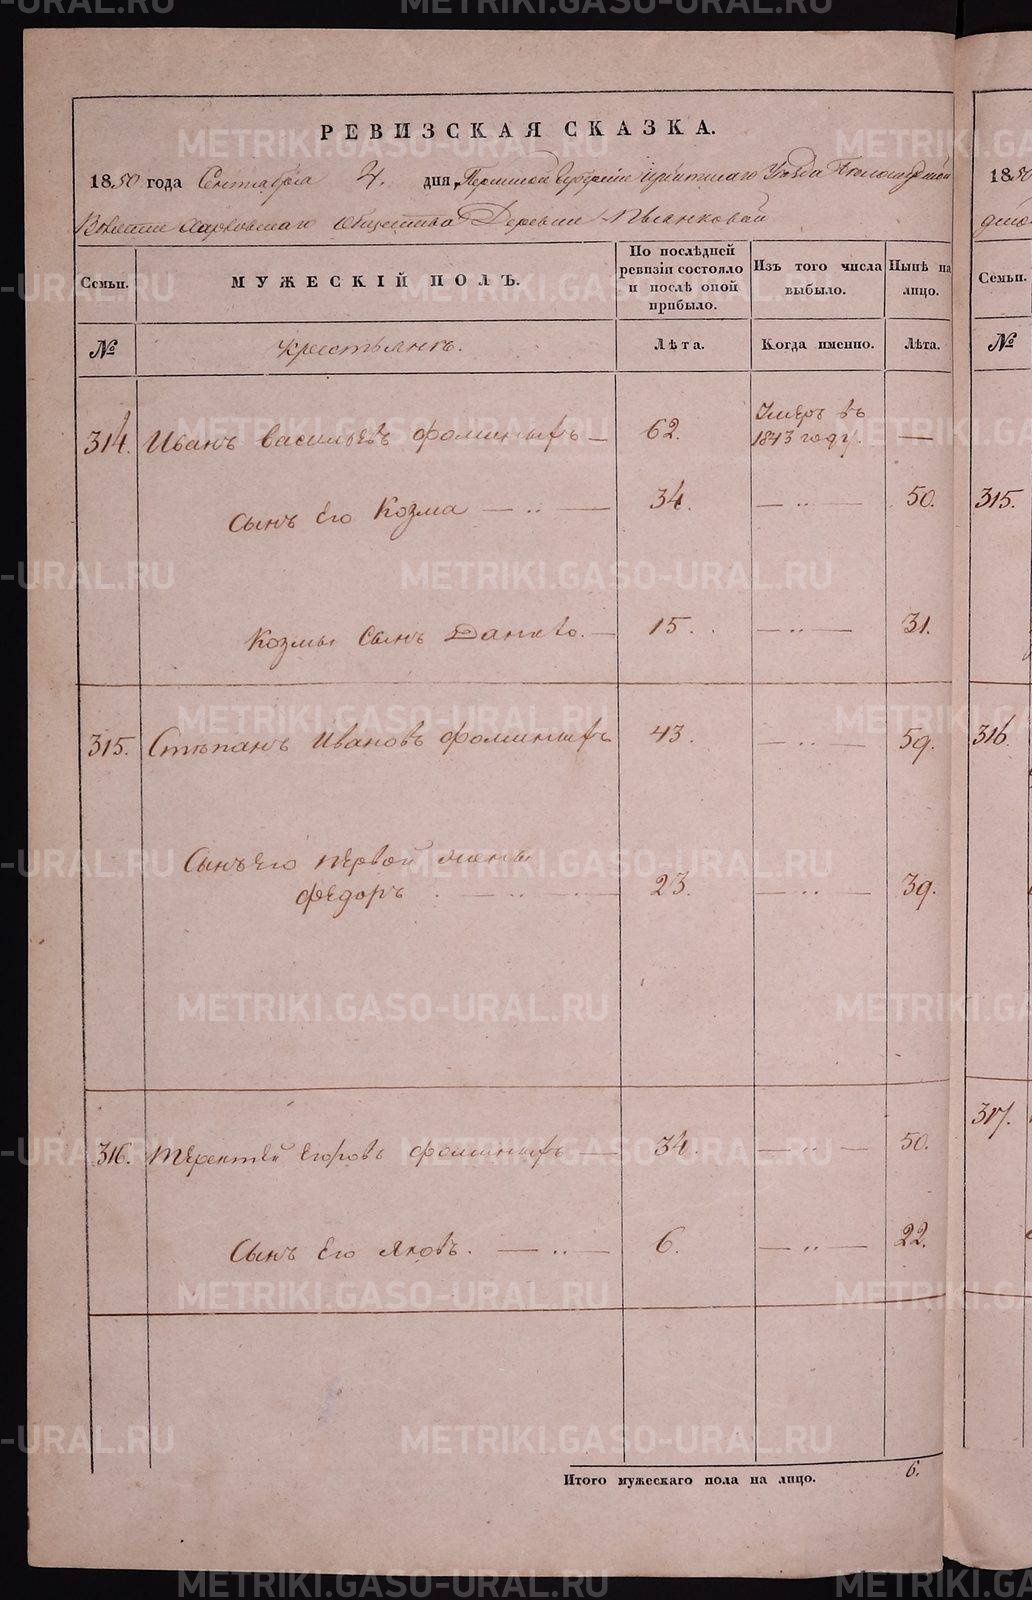 РЕВИЗСКАЯ СКАЗКА.
1850 года Сентября 4. дня, Пермской Губернии Ирбитскаго Уезда Белослудской
Волости Харловскаго общества Деревни Пьянковой
Семьи. МУЖЕСКІЙ ПОЛЪ. По послѣдней ревизіи состояло и послѣ оной прибыло. Изъ того числа выбыло. Нынѣ на лицо.
№ Крестьянъ. Лѣта. Когда именно. Лѣта.
314. Иванъ Васильевъ Фоминыхъ — 62. Умеръ въ 1843 году. —
Сынъ Его Козма — „ — 34. — „ — 50.
Козмы Сынъ Данило. — 15. — „ — 31.
315. Степанъ Ивановъ Фоминыхъ 43. — „ — 59.
Сынъ Его первой жены
Федоръ — „ — 23. — „ — 39.
316. Терентей Егоровъ Фоминыхъ — 34. — „ — 50.
Сынъ Его Яковъ. — „ — 6. — „ — 22.
Итого мужескаго пола на лицо. 6.
1850
Семьи.
№
315.
316.
317.
METRIKI.GASO-URAL.RU